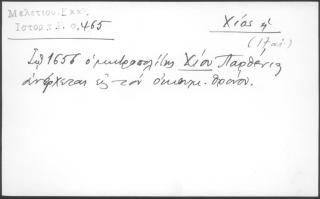 Μελετίου. Εκκ. Χίος
Ιστορ. σ. 465 (17 αι.)
1656 ὁ μητροπολίτης Χίου Παρθένιος
ἀνέρχεται εἰς τὸν οἰκουμ. θρόνον.